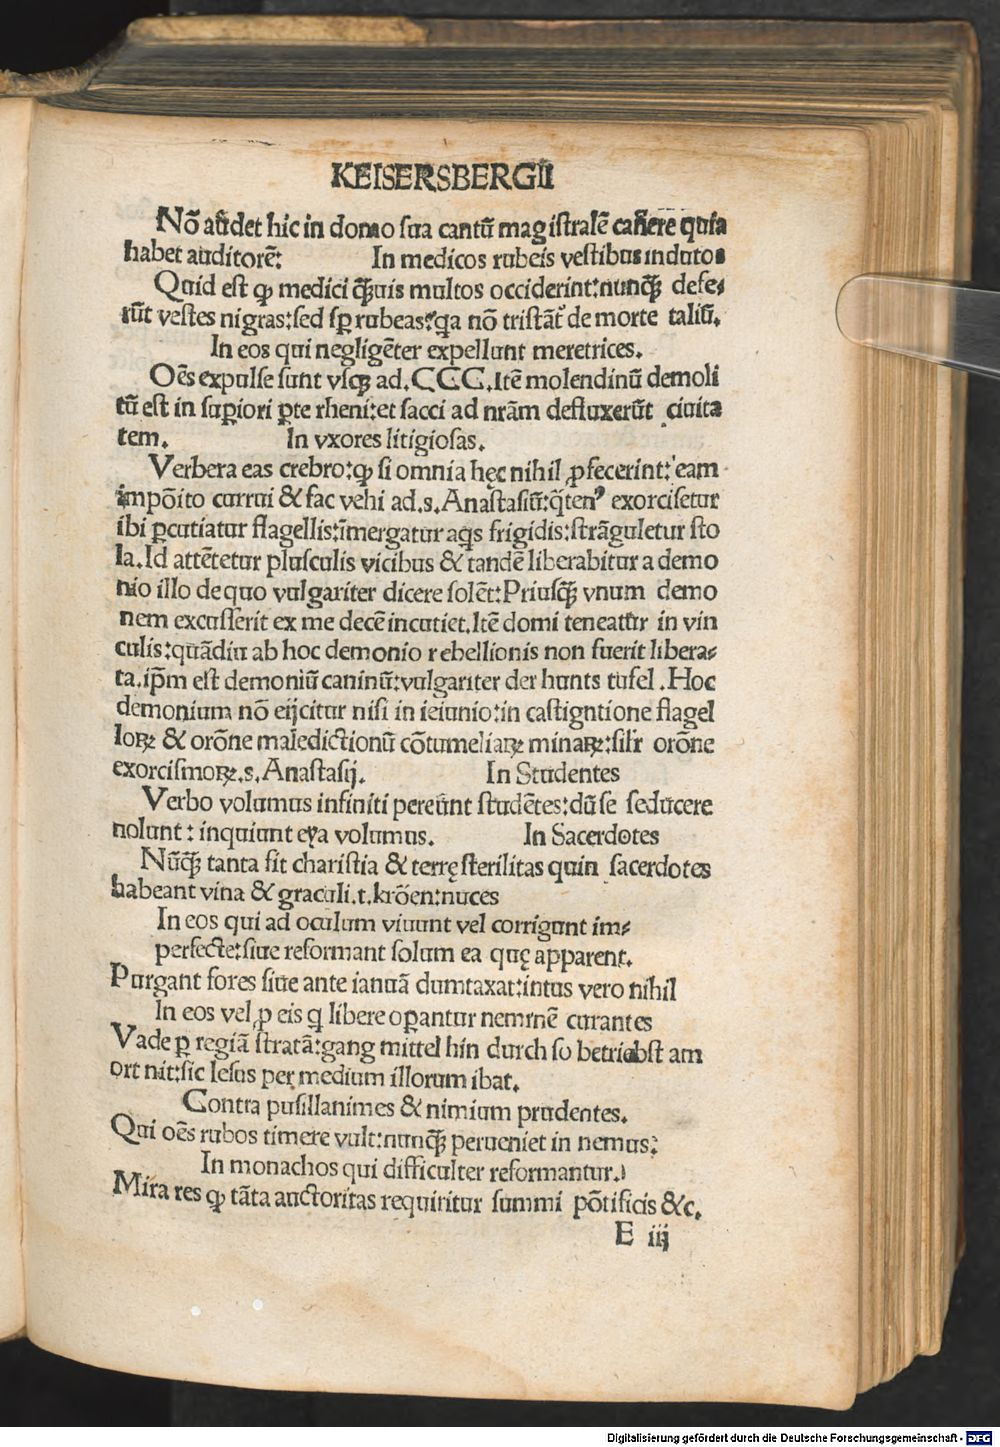 KEISERSBERGII
Nõ audet hic in domo sua cantũ magistralẽ canere quia
habet auditorẽ: In medicos rubeis vestibus indutos
Quid est ꝙ medici q̃uis multos occiderint:nunq̃ʒ defe⸗
rũt vestes nigras:sed sꝑ rubeas?qa nõ tristãt̉ de morte taliũ.
In eos qui negligẽter expellunt meretrices.
Oẽs expulse sunt vsqʒ ad.CCC.Itẽ molendinũ demoli
tũ est in suꝑiori ꝑte rheni:et sacci ad nrãm defluxerũt ciuita
tem. In vxores litigiosas.
Verbera eas crebro:ꝙ si omnia hęc nihil ꝓfecerint:eam
impõito currui & fac vehi ad.s.Anastasiũ:q̃tenꝰ exorcisetur
ibi ꝑcutiatur flagellis:ĩmergatur aqs frigidis:strãguletur sto
la.Id attẽtetur plusculis vicibus & tandẽ liberabitur a demo
nio illo de quo vulgariter dicere solẽt:Priusq̃ʒ vnum demo
nem excusserit ex me decẽ incutiet.Itẽ domi teneatur in vin
culis:quãdiu ab hoc demonio rebellionis non fuerit libera⸗
ta.ip̃m est demoniũ caninũ:vulgariter der hunts tufel.Hoc
demonium nõ eijcitur nisi in ieiunio:in castigntione flagel
loꝝ & orõne maledictionũ cõtumeliaꝝ minaꝝ:sil̉r orõne
exorcismoꝝ.s.Anastasij. In Studentes
Verbo volumus infiniti pereunt studẽtes:dũ se seducere
nolunt: inquiunt eya volumus. In Sacerdotes
Nũq̃ʒ tanta sit charistia & terrę sterilitas quin sacerdotes
habeant vina & graculi.t.krõen:nuces
In eos qui ad oculum viuunt vel corrigunt im⸗
perfecte:siue reformant solum ea quę apparent.
Purgant fores siue ante ianuã dumtaxat:intus vero nihil
In eos vel ꝓ eis q libere oꝑantur neminẽ curantes
Vade ꝑ regiã stratã:gang mittel hin durch so betriebst am
ort nit:sic Iesus per medium illorum ibat.
Contra pusillanimes & nimium prudentes.
Qui oẽs rubos timere vult:nunq̃ʒ perueniet in nemus:
In monachos qui difficulter reformantur.
Mira res ꝙ tãta auctoritas requiritur summi põtificis &c.
E iij
Digitalisierung gefördert durch die Deutsche Forschungsgemeinschaft - DFG